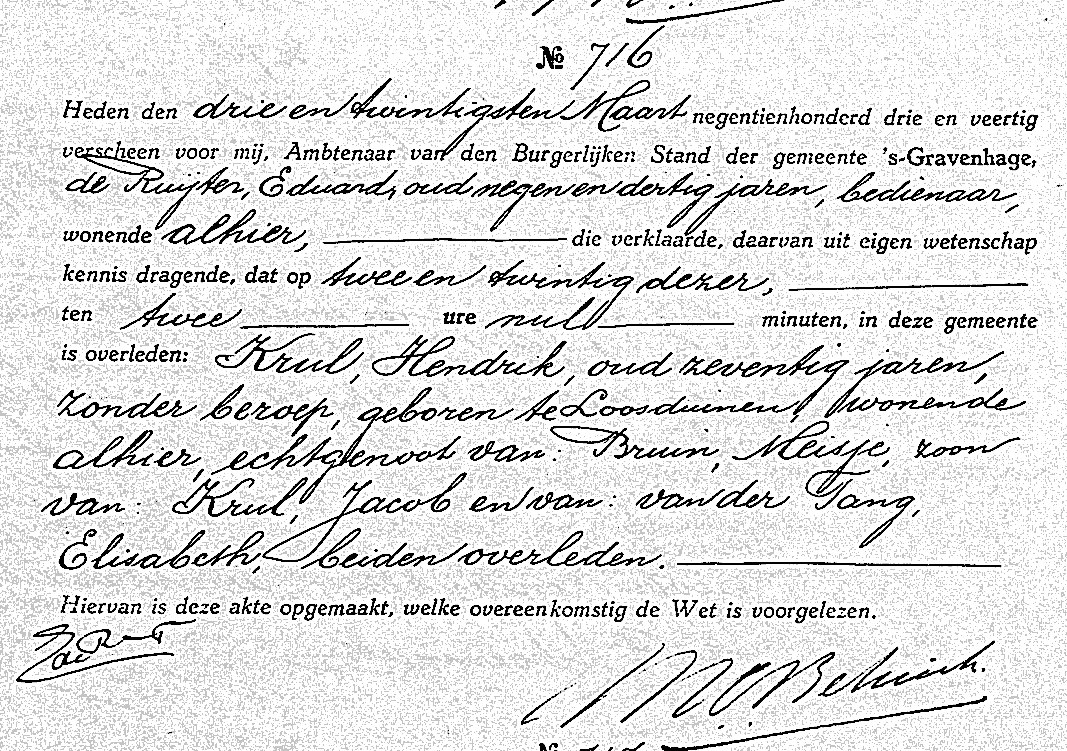 № 716
Heden den drie en twintigsten Maart negentienhonderd drie en veertig
verscheen voor mij, Ambtenaar van den Burgerlijken Stand der gemeente 's-Gravenhage,
de Ruijter, Eduard, oud negen en dertig jaren, bedienaar,
wonende alhier, die verklaarde, daarvan uit eigen wetenschap
kennis dragende, dat op twee en twintig dezer,
ten twee ure nul minuten, in deze gemeente
is overleden: Krul, Hendrik, oud zeventig jaren,
zonder beroep, geboren te Loosduinen, wonende
alhier, echtgenoot van: Bruin, Meisje, zoon
van: Krul, Jacob en van: van der Tang,
Elisabeth, beiden overleden.
Hiervan is deze akte opgemaakt, welke overeenkomstig de Wet is voorgelezen.